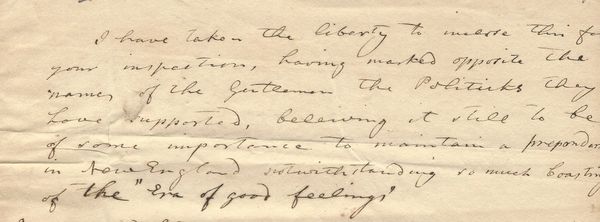 I have taken the liberty to inclose this fo
your inspection, having marked opposite the
names of the Gentlemen the Politicks they
have supported, believing it still to be
of some importance to maintain a prepondar
in New England notwithstanding so much boasting
of the "Era of good feelings"